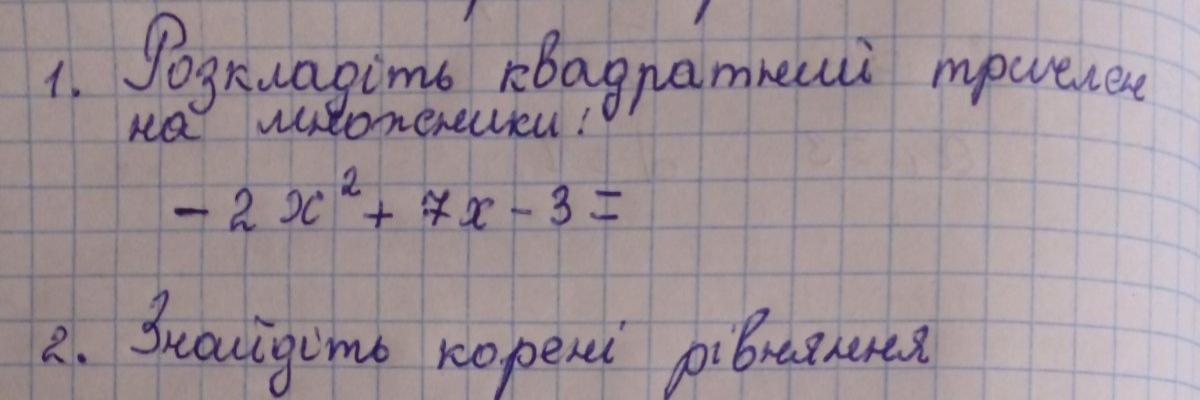 1. Розкладіть квадратний тричлен
на множники:
- 2x² + 7x - 3 =
2. Знайдіть корені рівняння